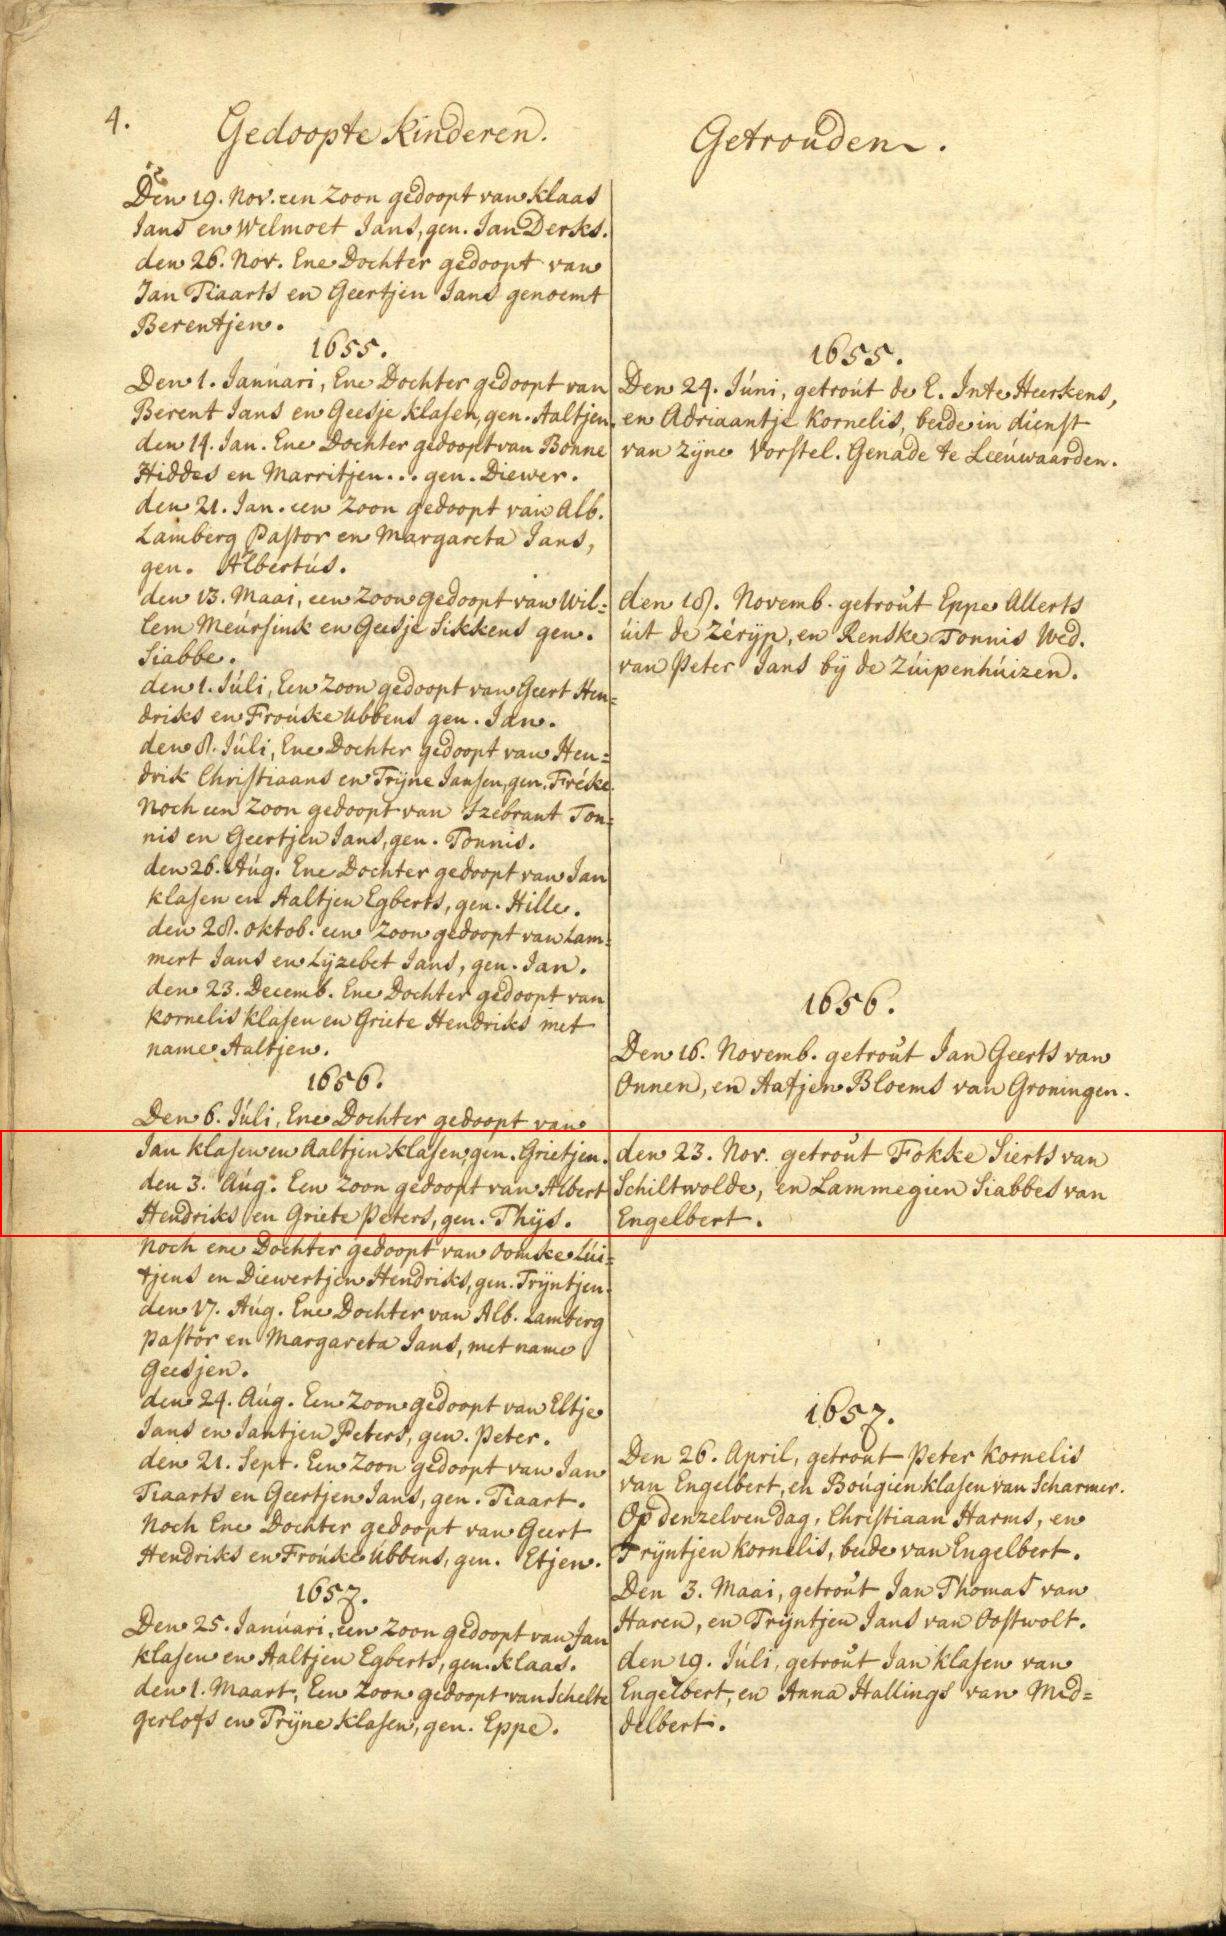 4.
Gedoopte Kinderen.
Den 19. Nov. een Zoon gedoopt van Klaas
Jans en Welmoet Jans, gen. Jan Derks.
den 26. Nov. Ene Dochter gedoopt van
Jan Tiaarts en Geertjen Jans genoemt
Berentjen.
1655.
Den 1. Januari, Ene Dochter gedoopt van
Berent Jans en Geesje Klasen, gen. Aaltjen.
den 14. Jan. Ene Dochter gedoopt van Bonne
Hiddes en Marritjen... gen. Diewer.
den 21. Jan. een Zoon gedoopt van Alb.
Lamberg Pastor en Margareta Jans,
gen. Albertús.
den 13. Maai, een Zoon gedoopt van Wil=
lem Meúrsink en Geesje Sikkens gen.
Siabbe.
den 1. Júli, Een Zoon gedoopt van Geert Hen=
driks en Froúske Ubbens gen. Jan.
den 8. Júli, Ene Dochter gedoopt van Hen=
drik Christiaans en Trijne Jansen, gen. Fréske.
Noch een Zoon gedoopt van Izebrant Ton=
nis en Geertjen Jans, gen. Tonnis.
den 26. Aúg. Ene Dochter gedoopt van Jan
Klasen en Aaltjen Egberts, gen. Hille.
den 28. Oktob. een Zoon gedoopt van Lam=
mert Jans en Lijzebet Jans, gen. Jan.
den 23. Decemb. Ene Dochter gedoopt van
Kornelis Klasen en Griete Hendriks met
name Aaltjen.
1656.
Den 6. Júli, Ene Dochter gedoopt van
Jan Klasen en Aaltjen Klasen, gen. Grietjen.
den 3. Aúg. Een Zoon gedoopt van Albert
Hendriks en Griete Peters, gen. Thijs.
Noch ene Dochter gedoopt van Oomske Lúi=
tjens en Diewertjen Hendriks, gen. Trijntjen.
den 17. Aúg. Ene Dochter van Alb. Lamberg
pastor en Margareta Jans, met name
Geesjen.
den 24. Aúg. Een Zoon gedoopt van Eltje
Jans en Jantjen Peters, gen. Peter.
den 21. Sept. Een Zoon gedoopt van Jan
Tiaarts en Geertjen Jans, gen. Tiaart.
Noch Ene Dochter gedoopt van Geert
Hendriks en Froúske Ubbens, gen. Etjen.
1657.
Den 25. Janúari, een Zoon gedoopt van Jan
Klasen en Aaltjen Egberts, gen. Klaas.
den 1. Maart, Een Zoon gedoopt van Schelte
Gerlofs en Trijne Klasen, gen. Eppe.
Getrouden.
1655.
Den 24. Júni, getroút de E. Inte Heerkens,
en Adriaantje Kornelis, beide in dienst
van Zijne Vorstel. Genade te Leeúwaarden.
den 18. Novemb. getroút Eppe Allerts
úit de Zérijp, en Renske Tonnis Wed.
van Peter Jans bij de Zúipenhúizen.
1656.
Den 16. Novemb. getroút Jan Geerts van
Onnen, en Aatjen Bloems van Groningen.
den 23. Nov. getroút Fokke Sierts van
Schiltwolde, en Lammegien Siabbes van
Engelbert.
1657.
Den 26. April, getroút Peter Kornelis
van Engelbert, en Boúgien Klasen van Scharmer.
Op denzelven dag, Christiaan Harms, en
Trijntjen Kornelis, beide van Engelbert.
Den 3. Maai, getroút Jan Thomas van
Haren, en Trijntjen Jans van Oostwolt.
den 19. Júli, getroút Jan Klasen van
Engelbert, en Anna Hallings van Mid=
delbert.